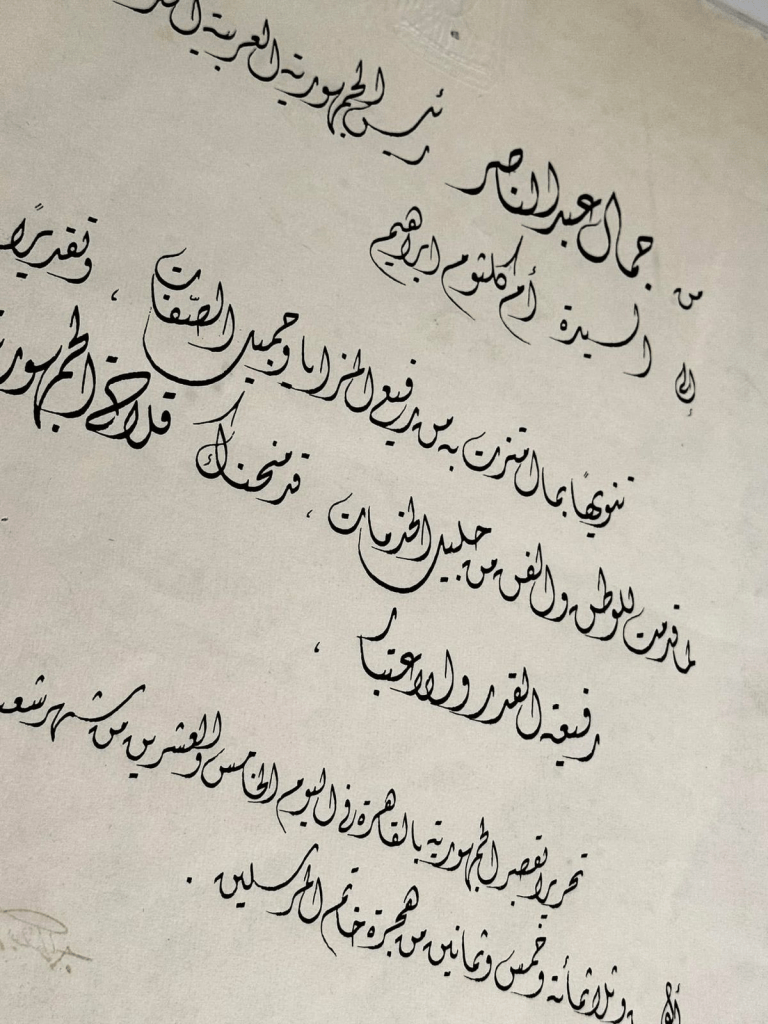 من جمال عبد الناصر رئيس الجمهورية العربية
إلى السيدة أم كلثوم ابراهيم
تنويهًا بما امتزت به من رفيع المزايا وجميل الصّفات، وتقديرًا
لما قدمت للوطن والفن من جليل الخدمات، قد منحناك قلادة الجمهورية
رفيعة القدر والاعتبار،
تحريرا بقصر الجمهورية بالقاهرة في اليوم الخامس والعشرين من شهر
وثلاثمأئة وخمس وثمانين من هجرة خاتم المرسلين.